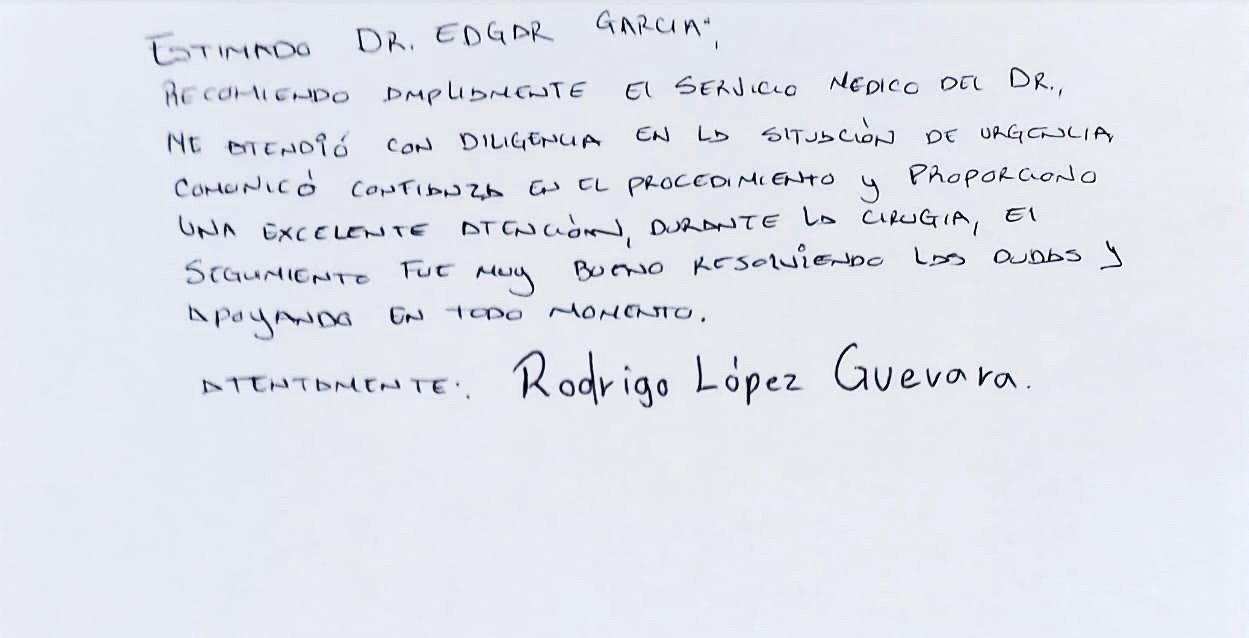 ESTIMADO DR. EDGAR GARCIA",
RECOMIENDO AMPLIAMENTE El SERVICIO MEDICO DEL DR.,
ME ATENDIÓ CON DILIGENCIA EN LA SITUACIÓN DE URGENCIA,
COMUNICÓ CONFIANZA EN EL PROCEDIMIENTO y PROPORCIONO
UNA EXCELENTE ATENCIÓN, DURANTE LA CIRUGIA, El
SEGUMIENTO FUE MUy BUENO RESOLVIENDO LAS DUDAS y
APOyANDO EN TODO MOMENTO.
ATENTAMENTE: Rodrigo López Guevara.